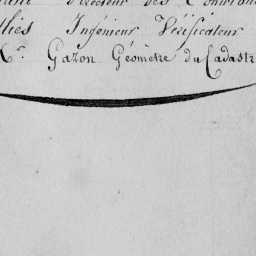 Directeur des Contri
lliés Ingénieur Vérificateur
Mr. Gazon Géomètre du Cadastr